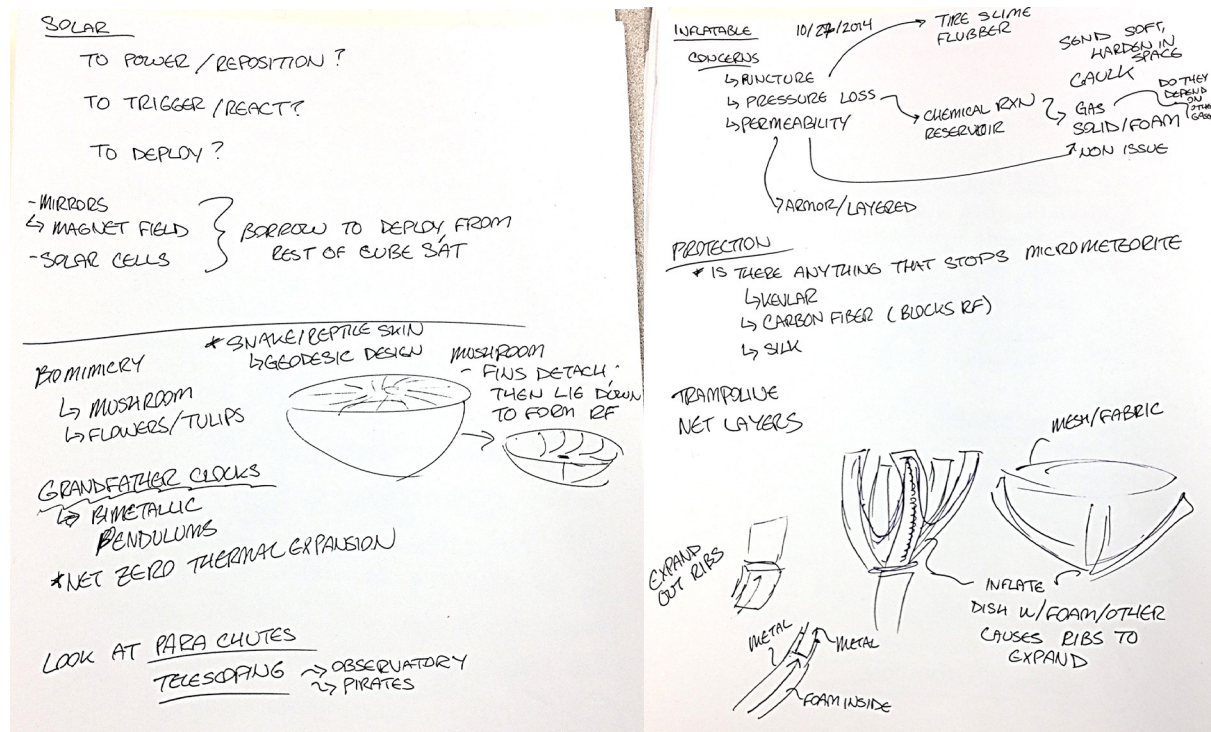 SOLAR
TO POWER/REPOSITION?
TO TRIGGER/REACT?
TO DEPLOY?
-MIRRORS
↳ MAGNET FIELD
-SOLAR CELLS
BORROW TO DEPLOY, FROM
REST OF CUBE SAT
* SNAKE/REPTILE SKIN
↳ GEODESIC DESIGN
BIOMIMICRY
↳ MUSHROOM
↳ FLOWERS/TULIPS
MUSHROOM
- FINS DETACH,
THEN LIE DOWN
TO FORM RF
GRANDFATHER CLOCKS
↳ BIMETALLIC
PENDULUMS
*NET ZERO THERMAL EXPANSION
LOOK AT PARACHUTES
TELESCOPING → OBSERVATORY
→ PIRATES
INFLATABLE 10/27/2014
CONCERNS
↳ PUNCTURE
↳ PRESSURE LOSS
↳ PERMEABILITY
TIRE SLIME
FLUBBER
SEND SOFT,
HARDEN IN
SPACE
CAULK
CHEMICAL RXN
RESERVOIR
GAS
SOLID/FOAM
NON ISSUE
DO THEY
DEPEND
ON
OTHER
GASES
ARMOR/LAYERED
PROTECTION
* IS THERE ANYTHING THAT STOPS MICROMETEORITE
↳ KEVLAR
↳ CARBON FIBER (BLOCKS RF)
↳ SILK
TRAMPOLINE
NET LAYERS
MESH/FABRIC
EXPAND
OUT RIBS
INFLATE
DISH W/FOAM/OTHER
CAUSES RIBS TO
EXPAND
METAL
METAL
FOAM INSIDE